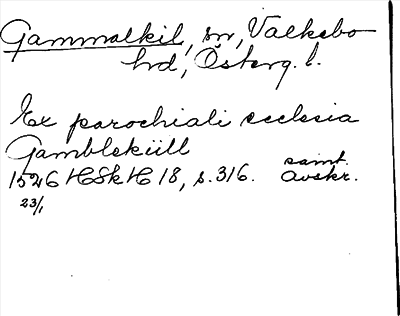 Gammalkil, sn, Valkebo
hd, Österg. l.
Ex parochiali ecclesia
Gambleküll
1526 HSkH 18, s. 316. samt.
avskr.
23/1